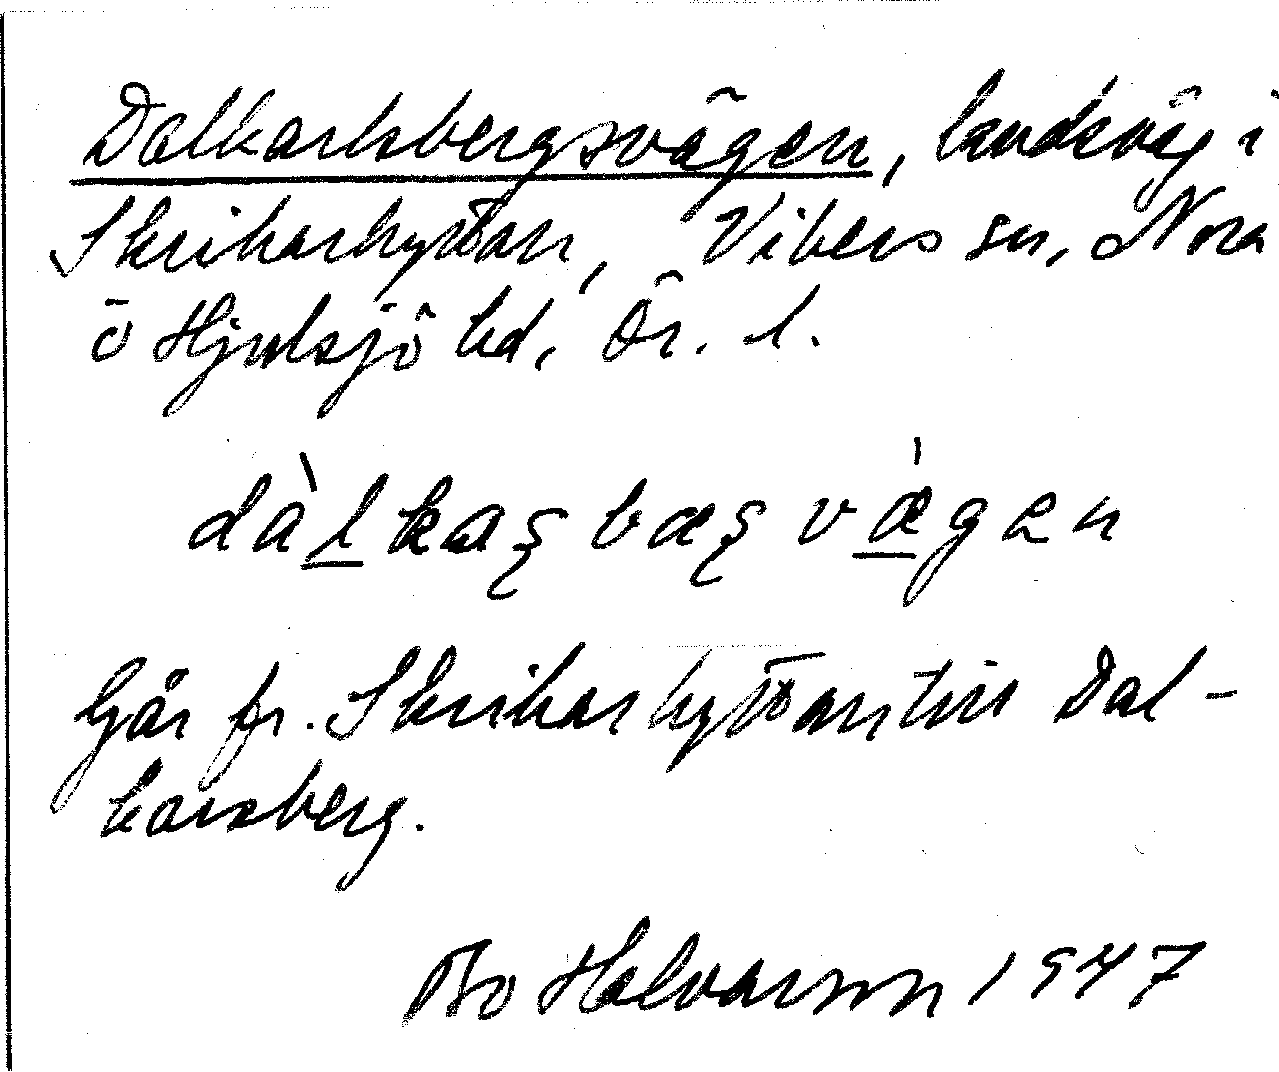 Dalkarlsbergsvägen, landsväg i
Skrikarhyttan, Vikers sn, Nora
o Hjulsjö hd, Ör. l.
dàlkaʂbæʂvæ̀gen
Går fr. Skrikarhyttan till Dal-
karsberg.
Bo Halvarson 1947